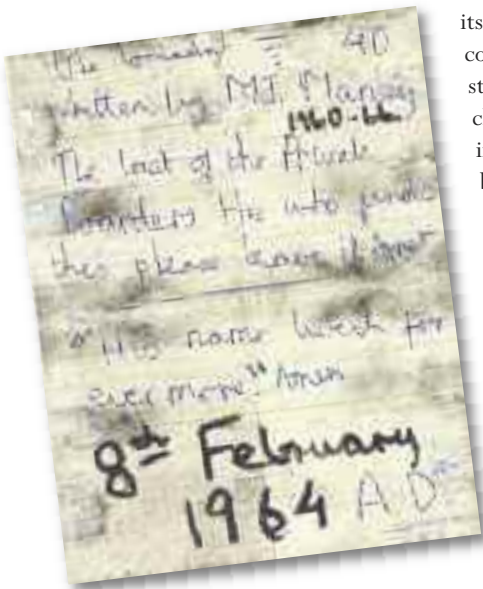 its
co
st
c
i
The AD
written by M.J.
1960-66
The last of the Private
Boarders
this please leave it
"His name liveth for
ever more" Amen
8th February
1964 AD